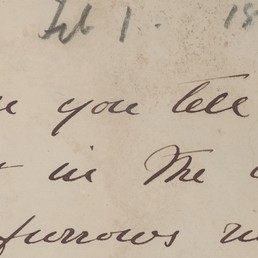 Feb 1. 18
you tell
in the
furrows